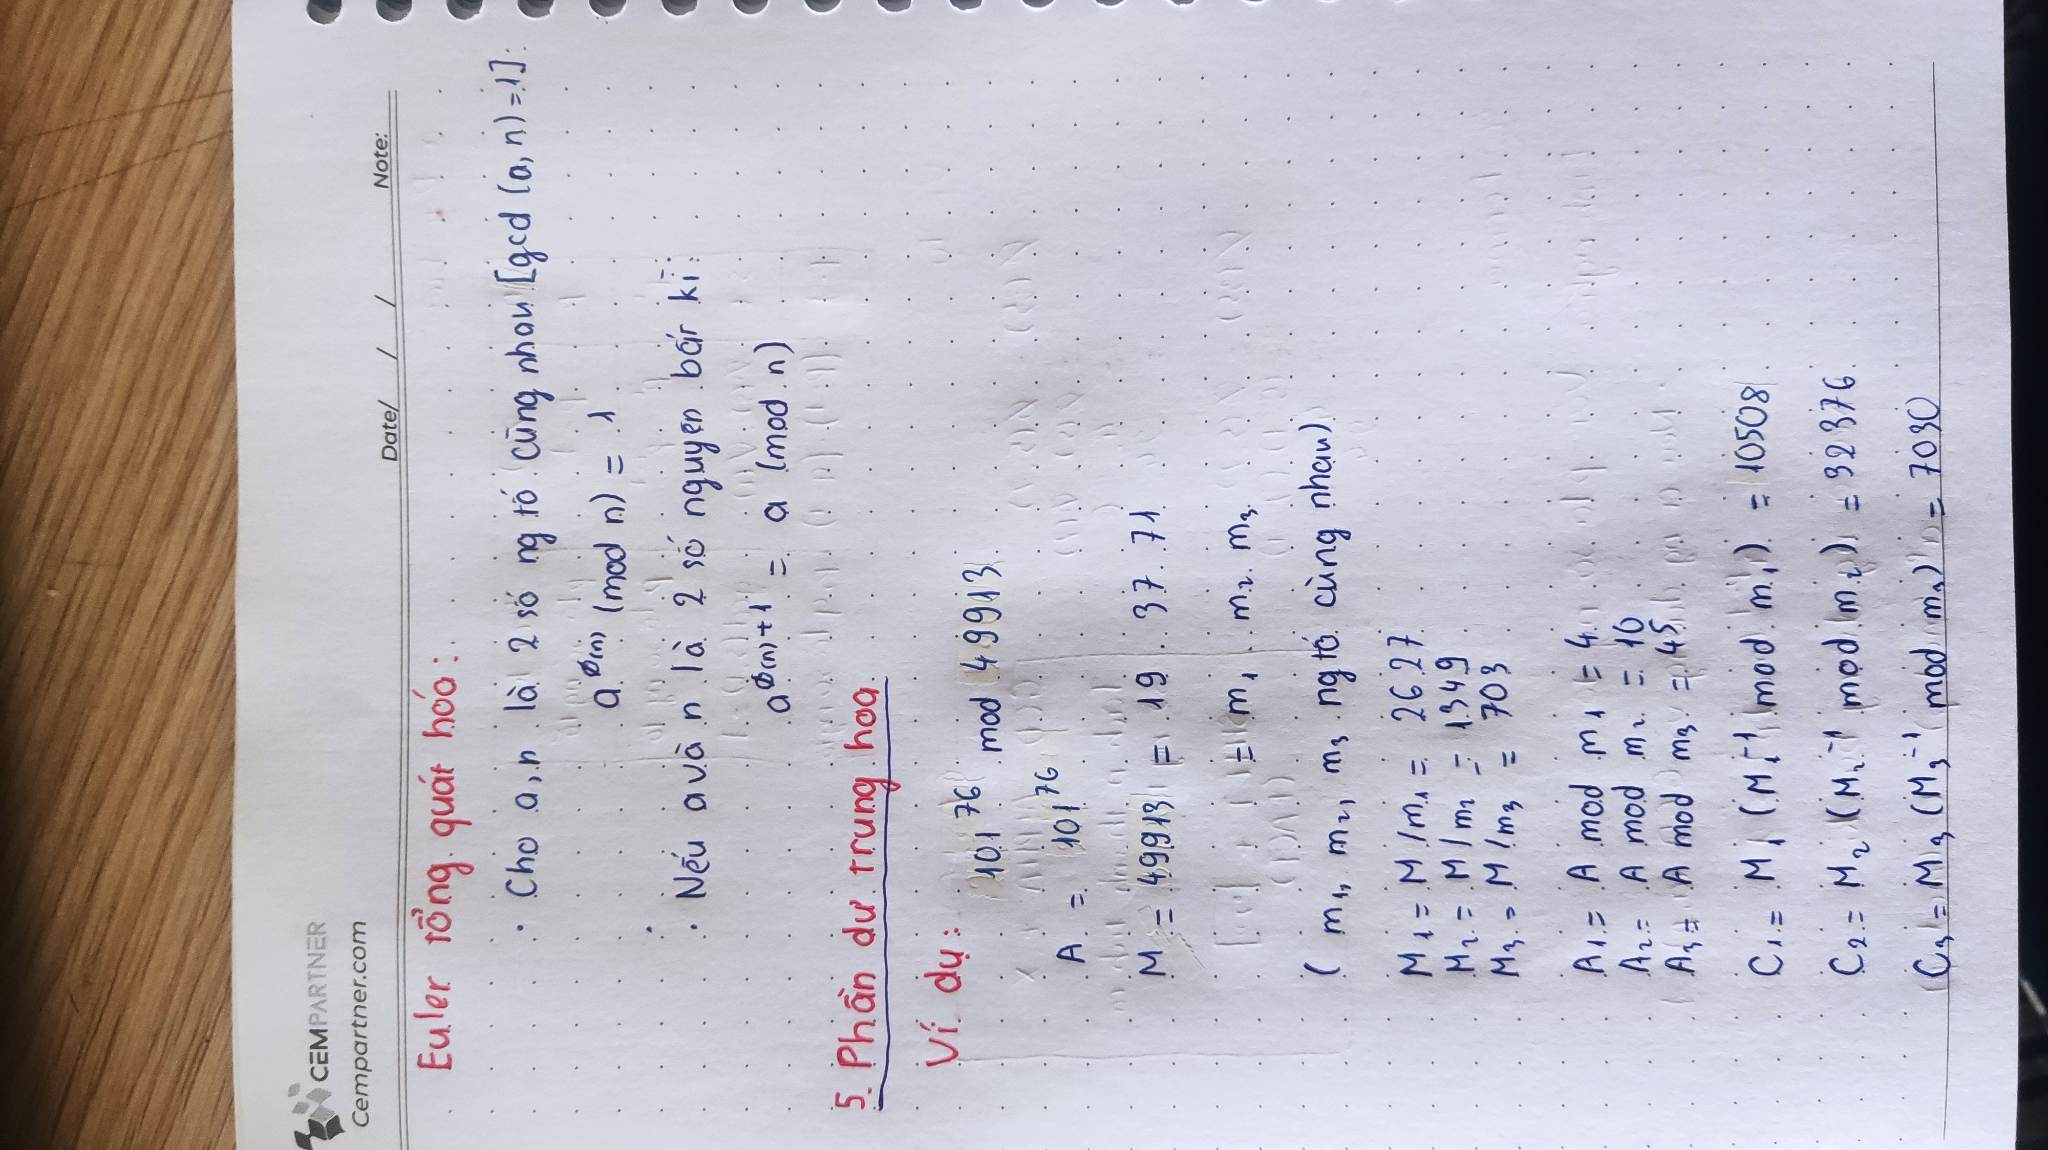 CEMPARTNER
Cempartner.com
Date/ / / Note:
Euler tổng quát hóa:
· Cho a, n là 2 số ng tố cũng nhau [gcd (a, n) = 1]:
a^Ø(n) (mod n) = 1
· Nếu a và n là 2 số nguyên bất kì:
a^Ø(n)+1 = a (mod n)
5. Phần dư trung hoa
Ví dụ:
101^76 mod 49913
A = 101^76
M = 49913 = 19 . 37 . 71
= m₁ . m₂ . m₃
( m₁, m₂, m₃ ng tố cùng nhau)
M₁ = M / m₁ = 2627
M₂ = M / m₂ = 1349
M₃ = M / m₃ = 703
A₁ = A mod m₁ = 4
A₂ = A mod m₂ = 10
A₃ = A mod m₃ = 45
C₁ = M₁ (M₁⁻¹ mod m₁) = 10508
C₂ = M₂ (M₂⁻¹ mod m₂) = 32376
C₃ = M₃ (M₃⁻¹ mod m₃) = 7030